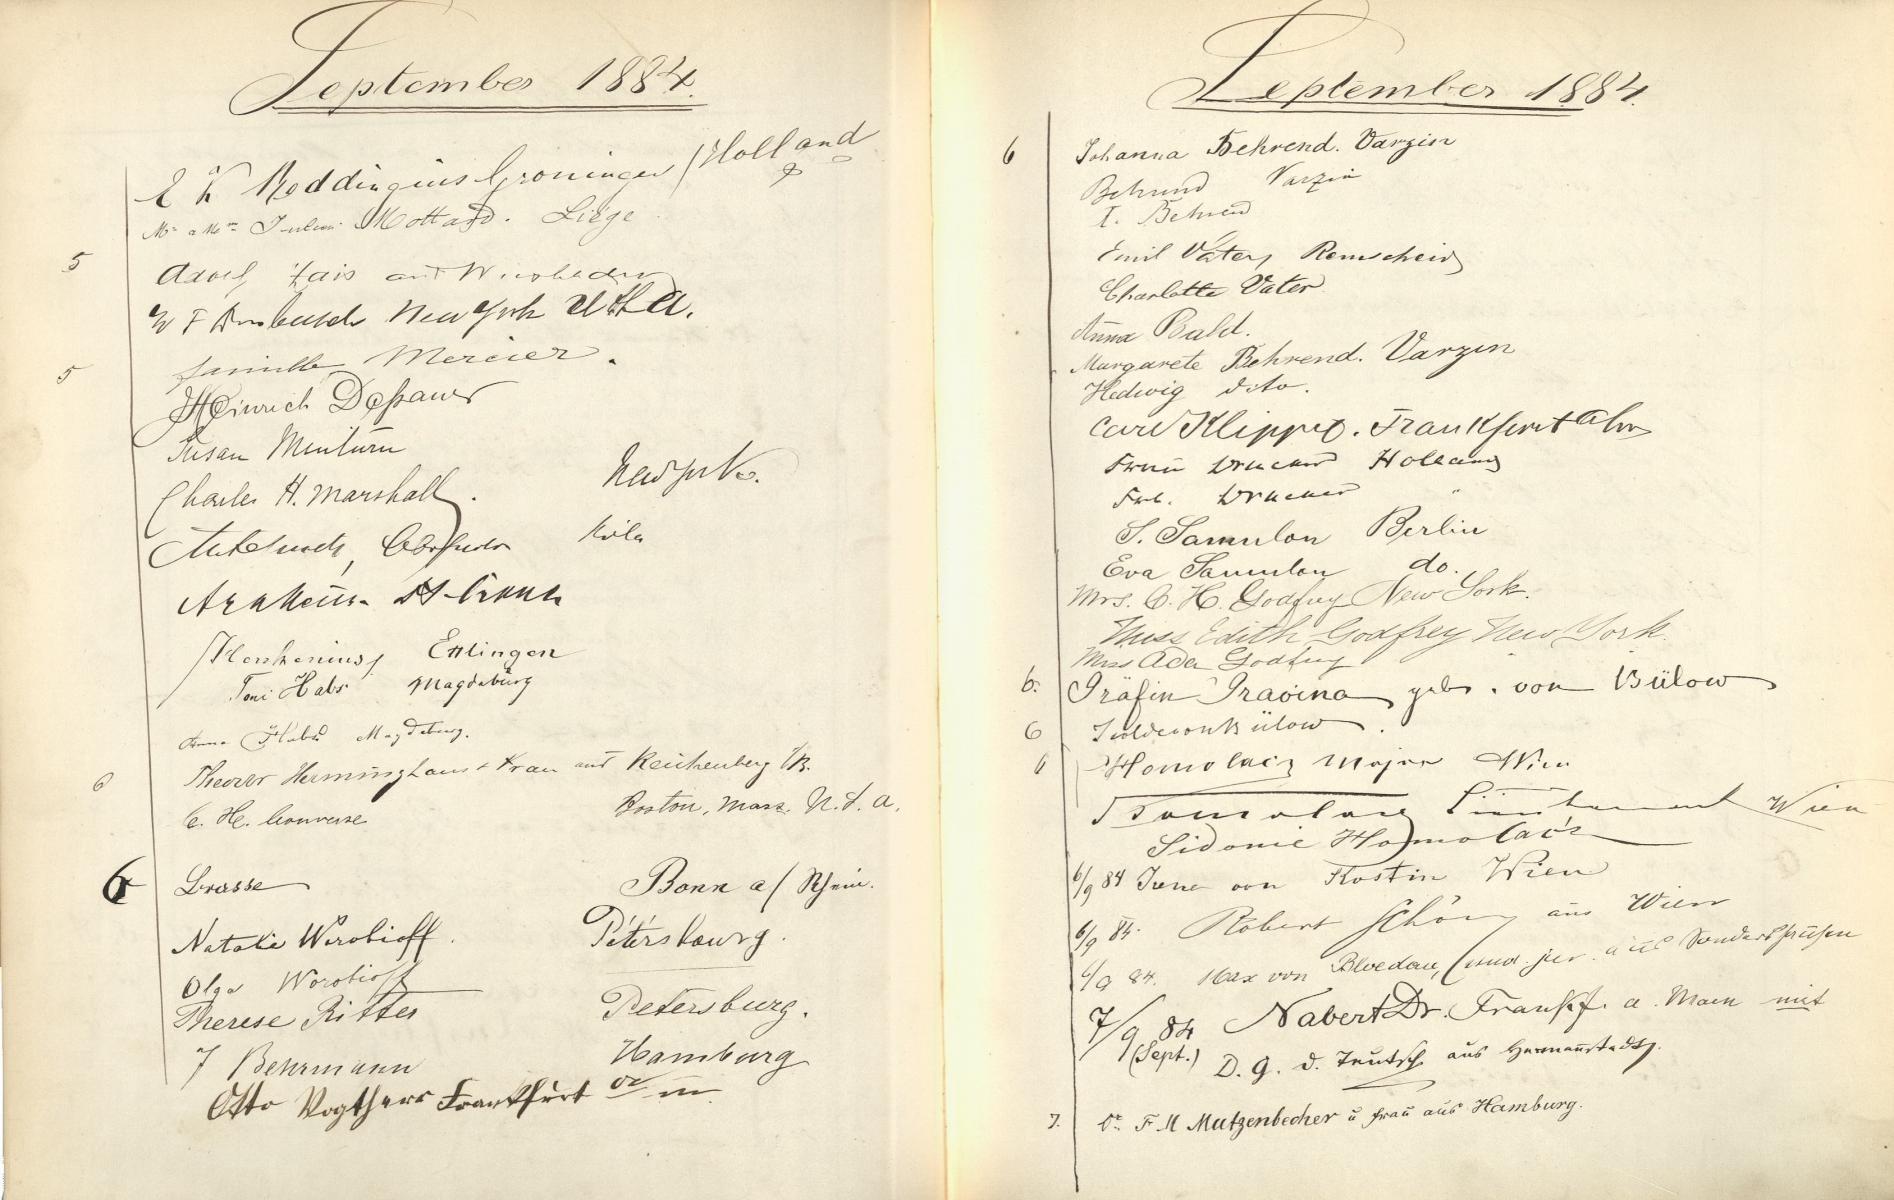 September 1884.
E H Roddingius Groningen / Holland
Mr a Mme Mottard. Liège
5 Adolf Zais aus Wiesbaden
W F New York U S A.
5 famille Mercier.
Heinrich Deßauer
Susan Minturn
Charles H. Marshall. New York.
Köln
Henkenius, Ettlingen
Toni Habs Magdeburg
Anna Habs Magdeburg.
6 Theodor Herminghaus & Frau aus Reichenberg i/B.
C. H. Converse Boston, Mass. U. S. A.
6 Brasse Bonn a/ Rhein.
Natalie Worobieff. Pétersbourg.
Olga Worobieff
Therese Ritter Petersburg.
J Behrmann Hamburg
Otto Vogtherr Frankfurt a/m
September 1884.
6 Johanna Behrend. Varzin
Behrend Varzin
Behrend
Emil Vater, Remscheid
Charlotte Vater
Anna Bald.
Margarete Behrend. Varzin
Hedwig dito.
Carl Klippel. Frankfurt a/m
Frau Drucker Holland
Frl. Drucker "
S. Samulon Berlin
Eva Samulon do.
Mrs. C. H. Godfrey New York.
Miss Edith Godfrey New York.
Miss Ada Godfrey
6. Gräfin geb. von Bülow
6 von Bülow.
6 Homolacz Major Wien
Homolacz Lieutenant Wien
Sidonie Homolacs
6/9 84 Irene von Rostin Wien
6/9 84. Robert Schön aus Wien
6/9 84. Max von Bloedau, cand. jur. aus Sondershausen
7/9 84 Nabert Dr. Frankf. a. Main mit
(Sept.) D. G. D. Teutsch aus Hermannstadt.
7. Dr. F. M Mutzenbecher u frau aus Hamburg.